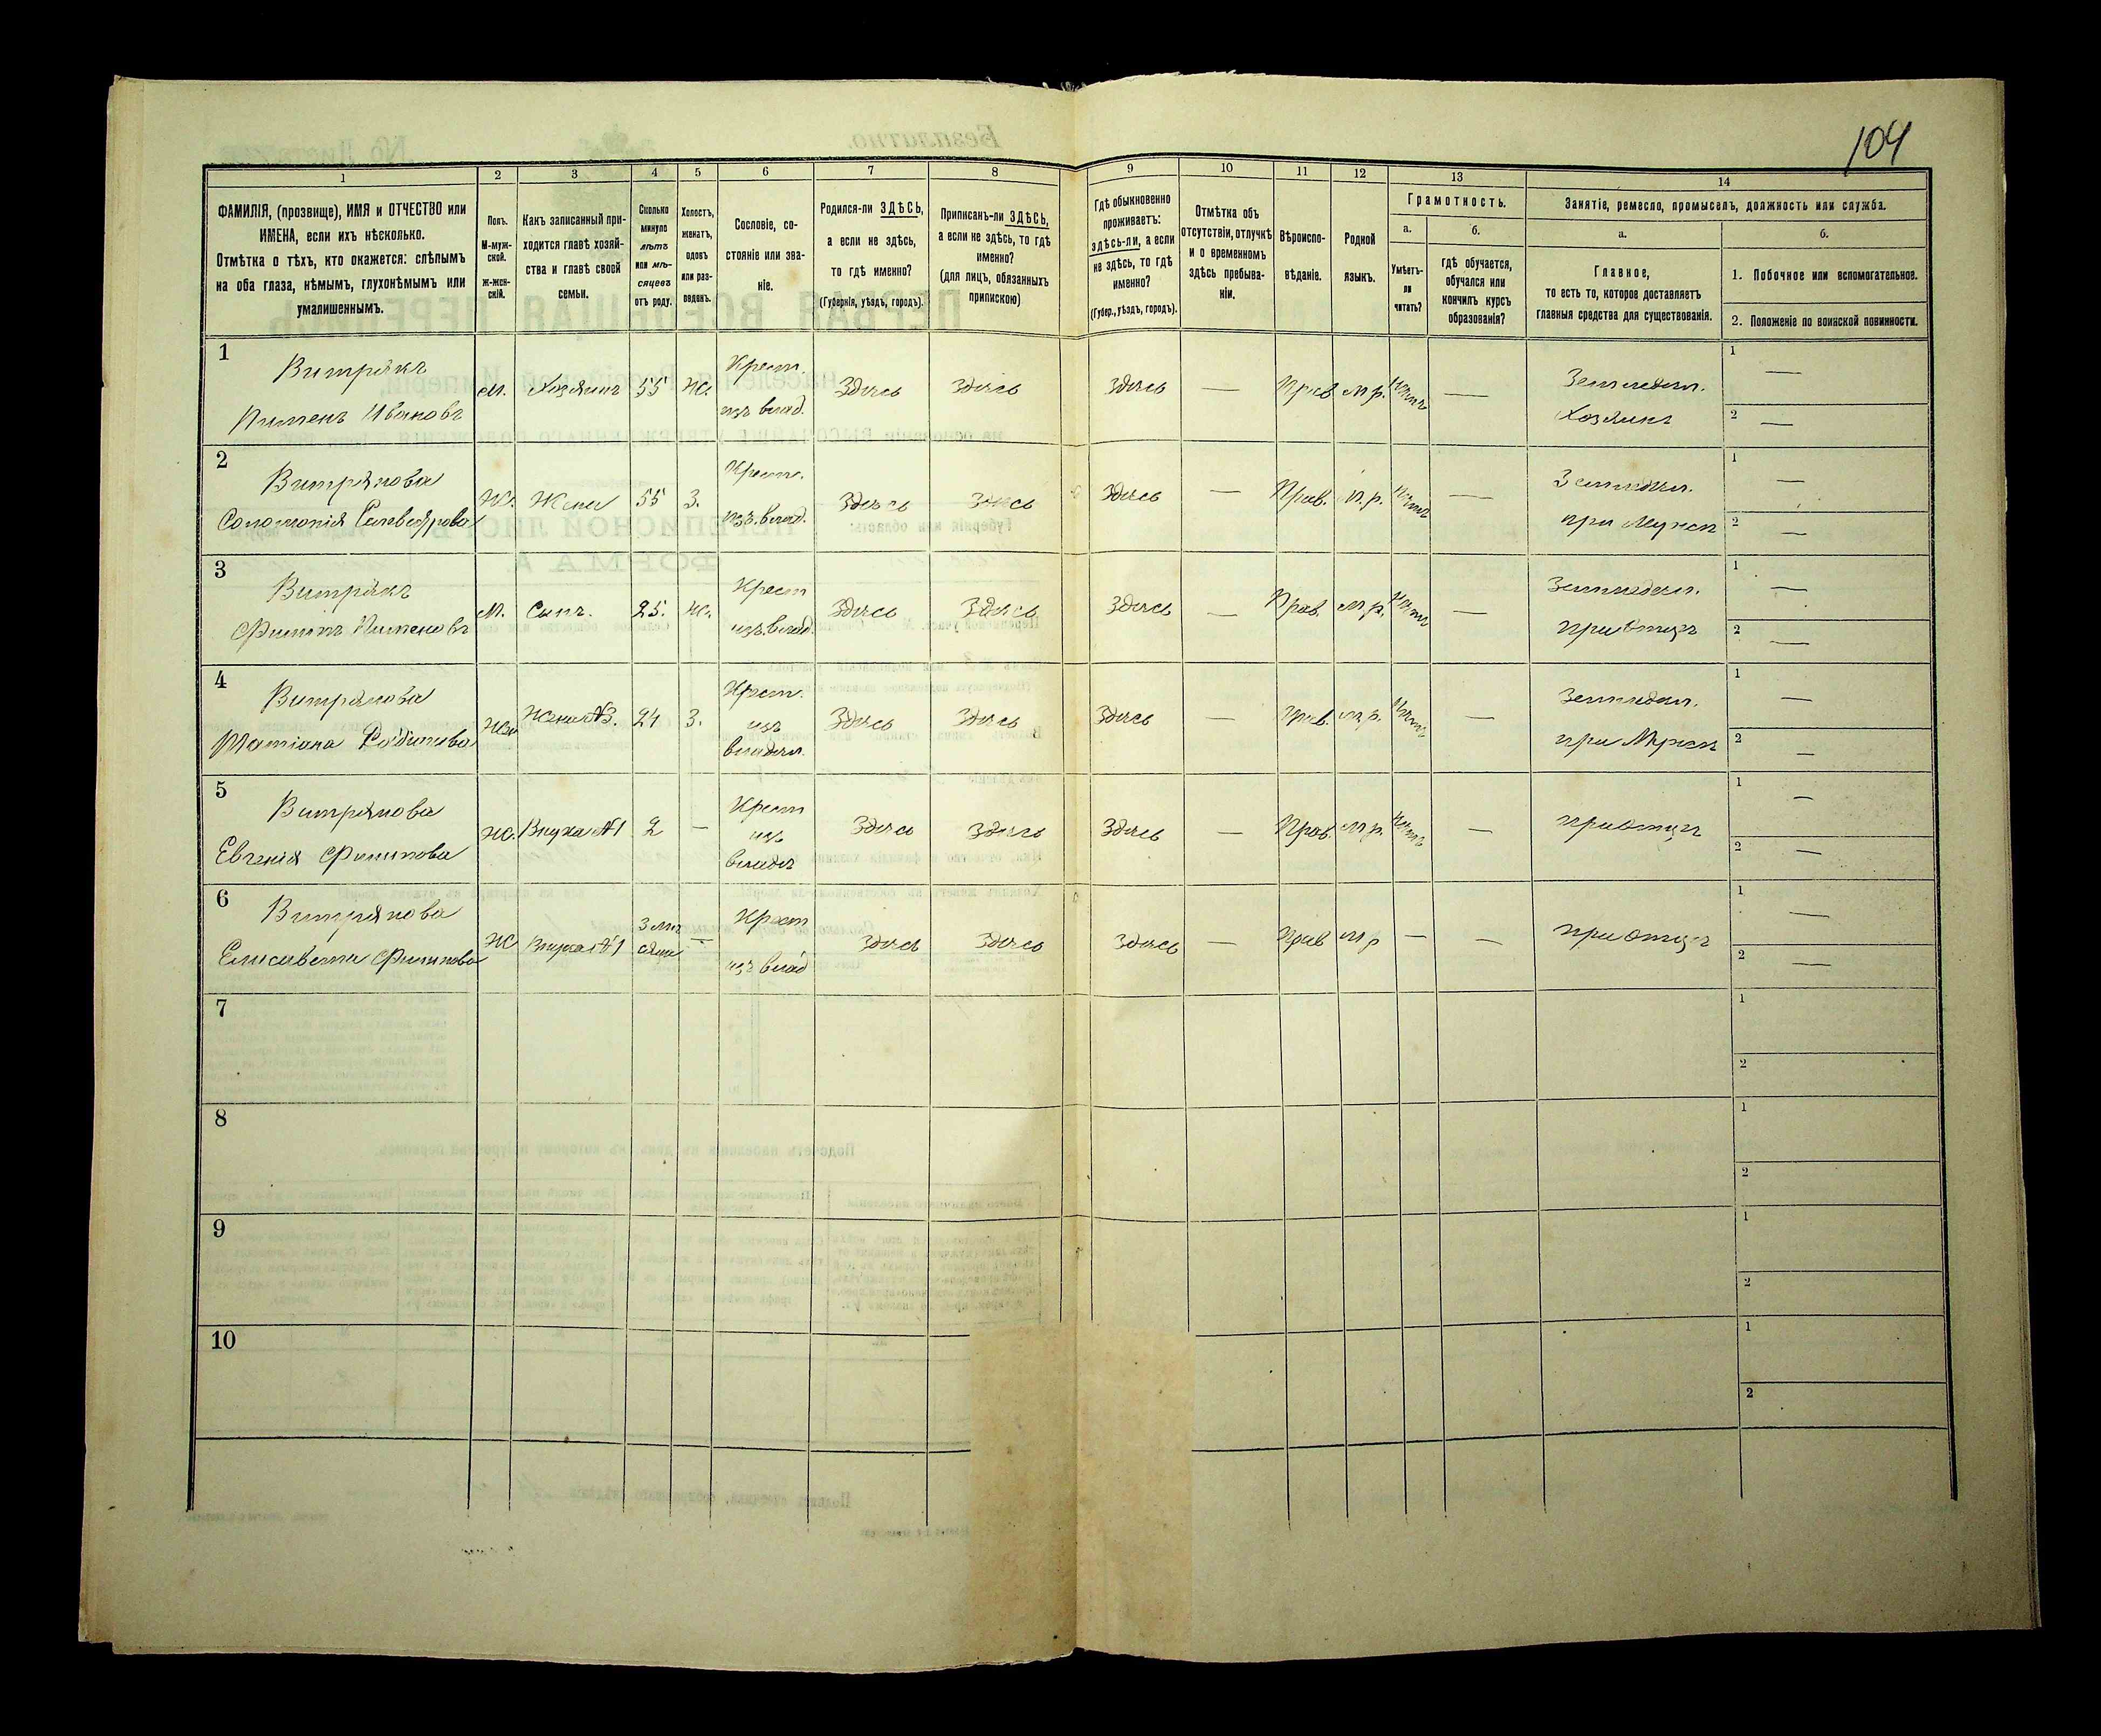 104
1
2
3
4
5
6
7
8
9
10
11
12
13
14
ФАМИЛІЯ, (прозвище), ИМЯ и ОТЧЕСТВО или
ИМЕНА, если ихъ нѣсколько.
Отмѣтка о тѣхъ, кто окажется: слѣпымъ
на оба глаза, нѣмымъ, глухонѣмымъ или
умалишеннымъ.
Полъ.
М-муж-
ской.
Ж-жен-
скій.
Какъ записанный при-
ходится главѣ хозяй-
ства и главѣ своей
семьи.
Сколько
минуло
лѣтъ
или мѣ-
сяцевъ
отъ роду.
Холостъ,
женатъ,
вдовъ
или раз-
веденъ.
Сословіе, со-
стояніе или зва-
ніе.
Родился-ли ЗДѢСЬ,
а если не здѣсь,
то гдѣ именно?
(Губернія, уѣздъ, городъ).
Приписанъ-ли ЗДѢСЬ,
а если не здѣсь, то гдѣ
именно?
(для лицъ, обязанныхъ
припискою)
Гдѣ обыкновенно
проживаетъ:
здѣсь-ли, а если
не здѣсь, то гдѣ
именно?
(Губер., уѣздъ, городъ).
Отмѣтка объ
отсутствіи, отлучкѣ
и о временномъ
здѣсь пребыва-
ніи.
Вѣроиспо-
вѣданіе.
Родной
языкъ.
Грамотность.
а.
Умѣетъ-
ли
читать?
б.
Гдѣ обучается,
обучался или
кончилъ курсъ
образованія?
Занятіе, ремесло, промыселъ, должность или служба.
а.
Главное,
то есть то, которое доставляетъ
главныя средства для существованія.
б.
1. Побочное или вспомогательное.
2. Положеніе по воинской повинности.
1
Витрякъ
Пименъ Ивановъ
м. Хозяинъ 55 Ж.
Крест.
изъ влад.
Здѣсь Здѣсь Здѣсь — Прав м р. нѣтъ —
Земледѣл.
Хозяинъ
1 —
2 —
2
Витрякова
Соломонія
Ж. Жена 55 З.
Крест.
изъ влад.
Здѣсь Здѣсь Здѣсь — Прав. м. р. нѣтъ —
Земледѣл.
при Мужѣ
1 —
2 —
3
Витрякъ
Филипъ Пименовъ
М. Сынъ. 25. Ж.
Крест
изъ влад.
Здѣсь Здѣсь Здѣсь — Прав. м. р. нѣтъ —
Земледѣл.
при Отцѣ
1 —
2 —
4
Витрякова
Татіана
Ж. Жена №3. 24 З.
Крест.
изъ
владѣл.
Здѣсь Здѣсь Здѣсь — Прав. м. р. нѣтъ —
Земледѣл.
при Мужѣ
1 —
2 —
5
Витрякова
Евгенія Филипова
Ж. Внука №1 2 —
Крест
изъ
владѣл
Здѣсь Здѣсь Здѣсь — Прав. м. р. нѣтъ —
при отцѣ
1 —
2 —
6
Витрякова
Елисавета Филипова
Ж Внука №1
3 мѣ
сяца
—
Крест
изъ влад
Здѣсь Здѣсь Здѣсь — Прав м р — —
при отцѣ
1 —
2 —
7
1
2
8
1
2
9
1
2
10
1
2